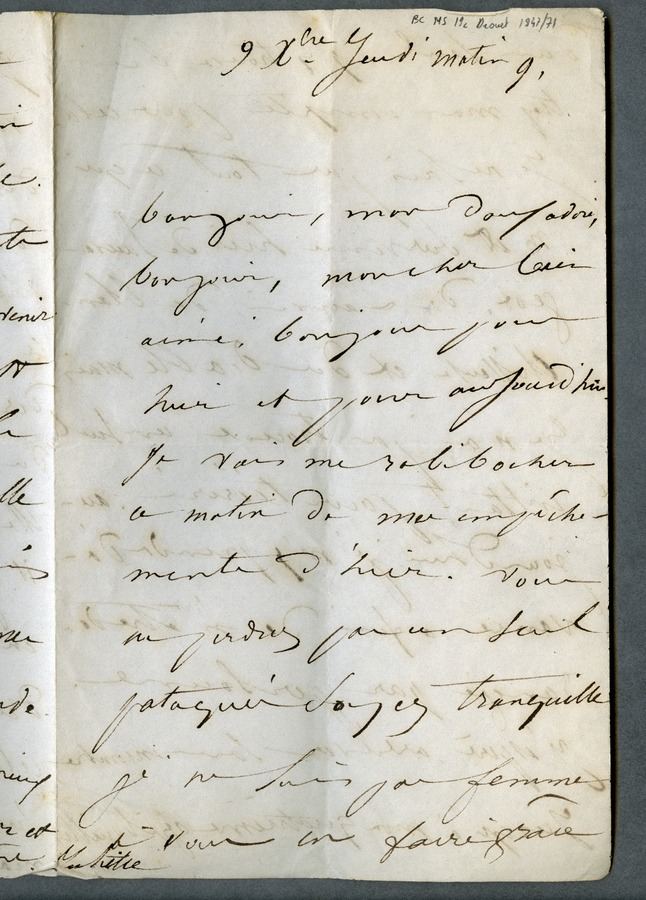 BC MS 19c Drouet 1947/71
9 Xbre Jeudi matin 9h
bonjour, mon doux adoré,
bonjour, mon cher bien
aimé, bonjour pour
hier et pour aujourd'hui.
Je vais me rabibocher
ce matin de mes empêche-
ments d'hier. Vous
ne perdrez pas un seul
pataquès soyez tranquille
je ne suis pas femme
à vous en faire grâce
Juliette